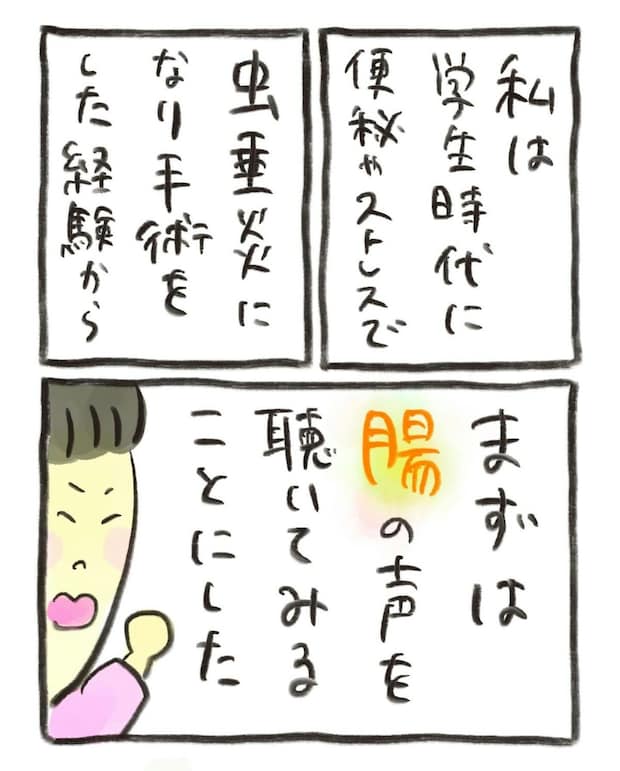 私は
学生時代に
便秘やストレスで
虫垂炎に
なり手術を
した経験から
まずは
腸の声を
聴いてみる
ことにした